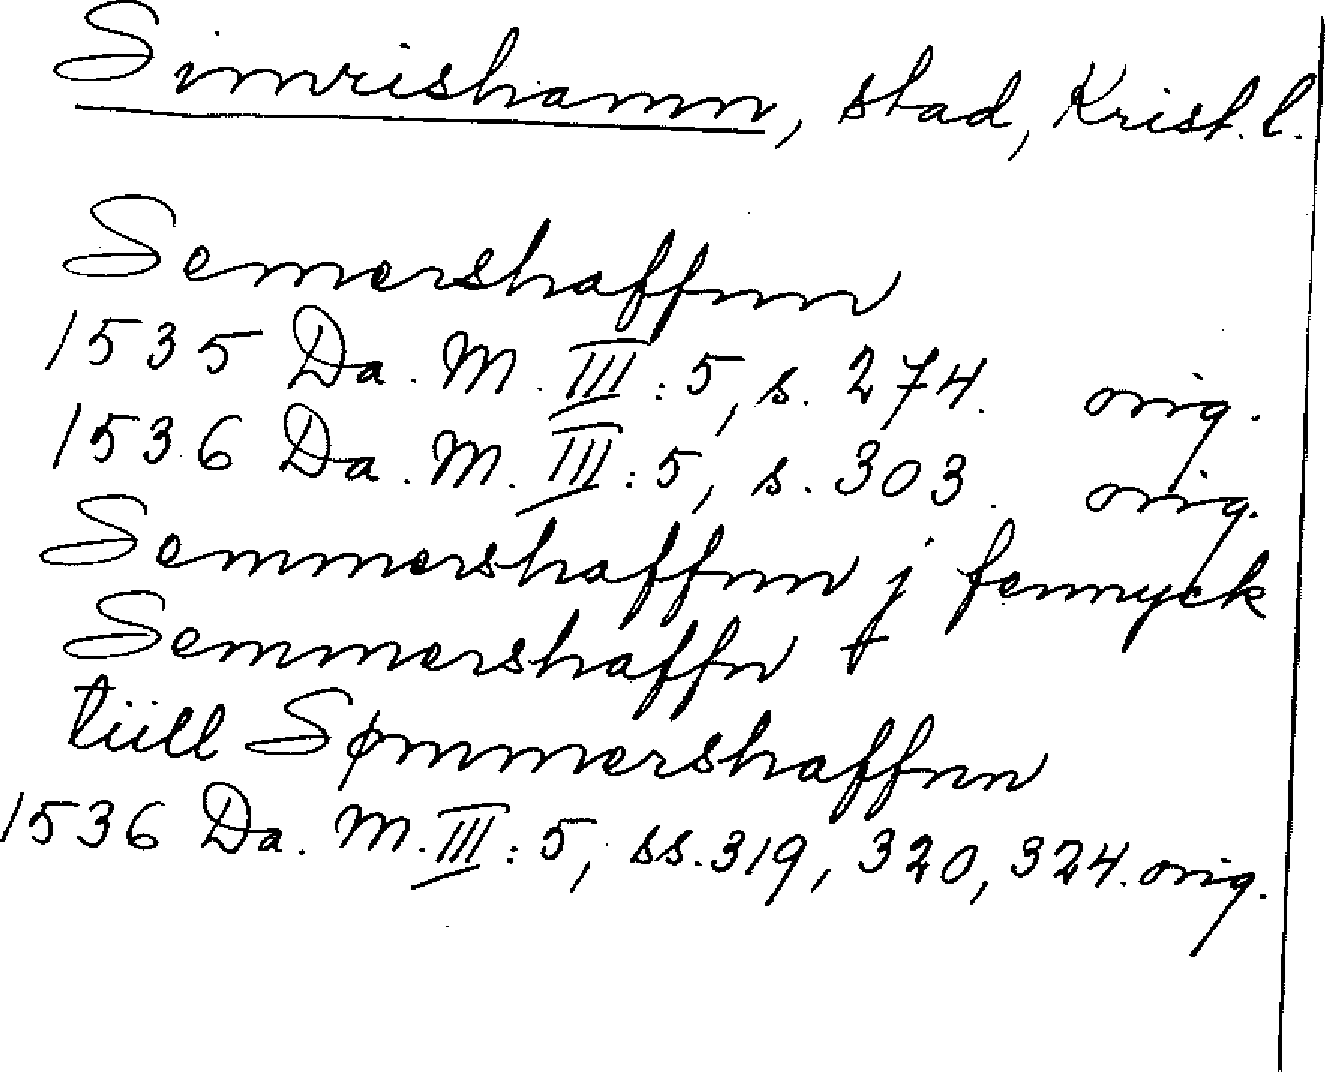 Simrishamn, stad, Krist. l.
Semershaffnn
1535 Da. M. III:5, s. 274. orig.
1536 Da. M. III:5, s. 303. orig.
Semmershaffnn j fennyck
Semmershaffn
tiill Sømmershaffnn
1536 Da. M. III:5, ss. 319, 320, 324. orig.